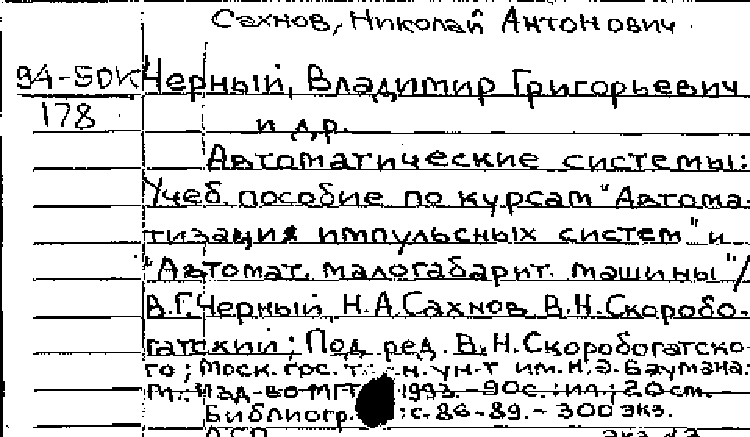 Сахнов, Николай Антонович
94-50К Черный, Владимир Григорьевич
178 и др.
Автоматические системы:
Учеб. пособие по курсам "Автома-
тизация импульсных систем" и
"Автомат. малогабарит. машины"/
В.Г.Черный, Н.А.Сахнов, В.Н.Скоробо-
гатский; Под ред. В.Н.Скоробогатско-
го; Моск. гос. ун-т им. Н.Э. Баумана.
М.: Изд-во 1993. - 90с.: ил.; 20см.
Библиогр. : с. 86-89. - 300 экз.